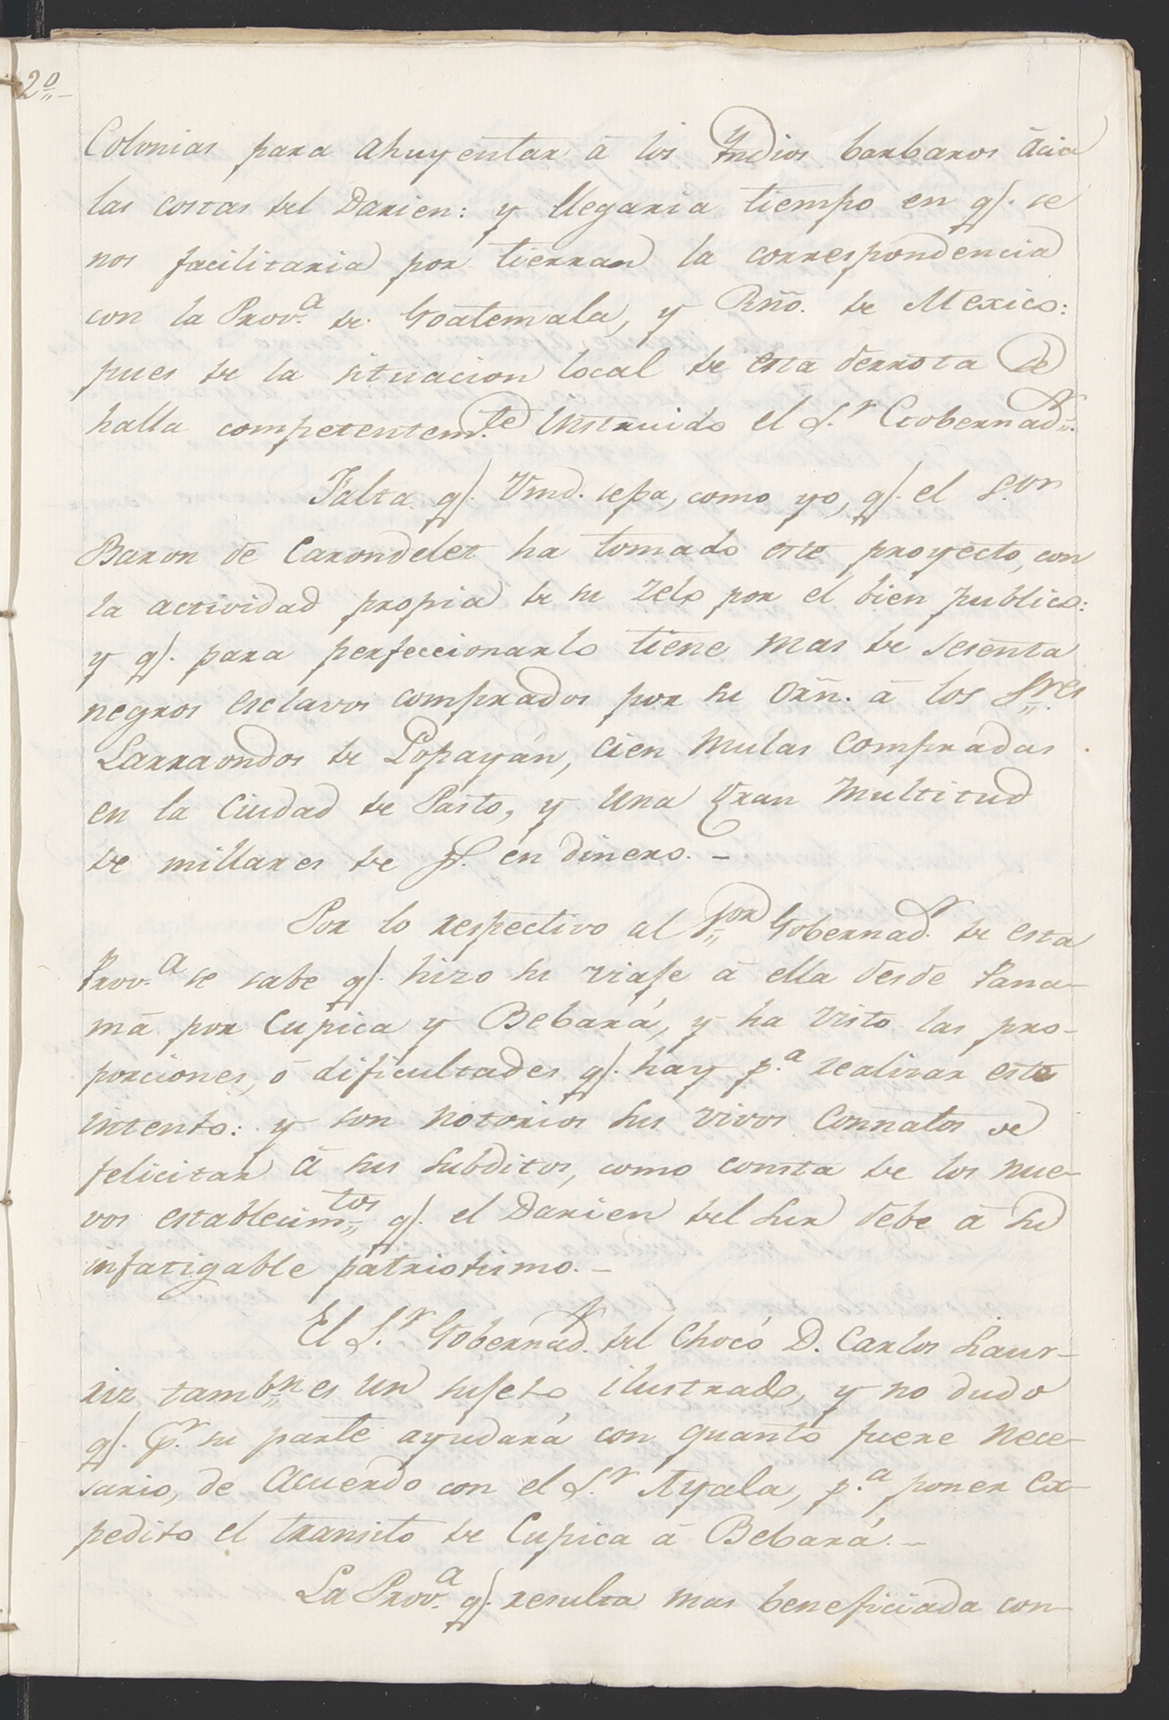 2º
Colonias para ahuyentar â los Yndios barbaros âcia
las costas del Darien: y llegaria tiempo en q̃. se
nos facilitaria por tierra la correspondencia
con la Prov.ª de Goatemala, y Rño. de Mexico:
pues de la situacion local de esta derrota se
halla competentem.te instruido el S.r Gobernad.r
Falta q̃. Vmd. sepa, como yo, q̃. el S.or
Baron de Carondelet ha tomado este proyecto, con
la actividad propia de su zelo por el bien publico:
y q̃. para perfeccionarlo tiene mas de sesenta
negros esclavos comprados por su orñ. â los S.res
Larraondos de Popayán, cien mulas compradas
en la Ciudad de Pasto, y una gran multitud
de millares de p.s en dinero. -
Por lo respectivo al S.or Gobernad.r de esta
Prov.ª se sabe q̃. hizo su viaje â ella desde Pana-
mâ por Cupica y Bebará, y ha visto las pro-
porciones, ô dificultades q̃. hay p.ª realizar este
intento: y son notorios sus vivos connatos de
felicitar â sus subditos, como consta de los nue-
vos establecim.tos q̃. el Darien del Sur debe â su
infatigable patriotismo. -
El S.r Gobernad.r del Chocó D. Carlos Siaur-
riz tambn es un sujeto ilustrado, y no dudo
q̃. p.r su parte ayudará con quanto fuere nece-
sario, de acuerdo con el S.r Ayala, p.ª poner ex-
pedito el transito de Cupica â Bebará. -
La Prov.ª q̃. resulta mas beneficiada con-